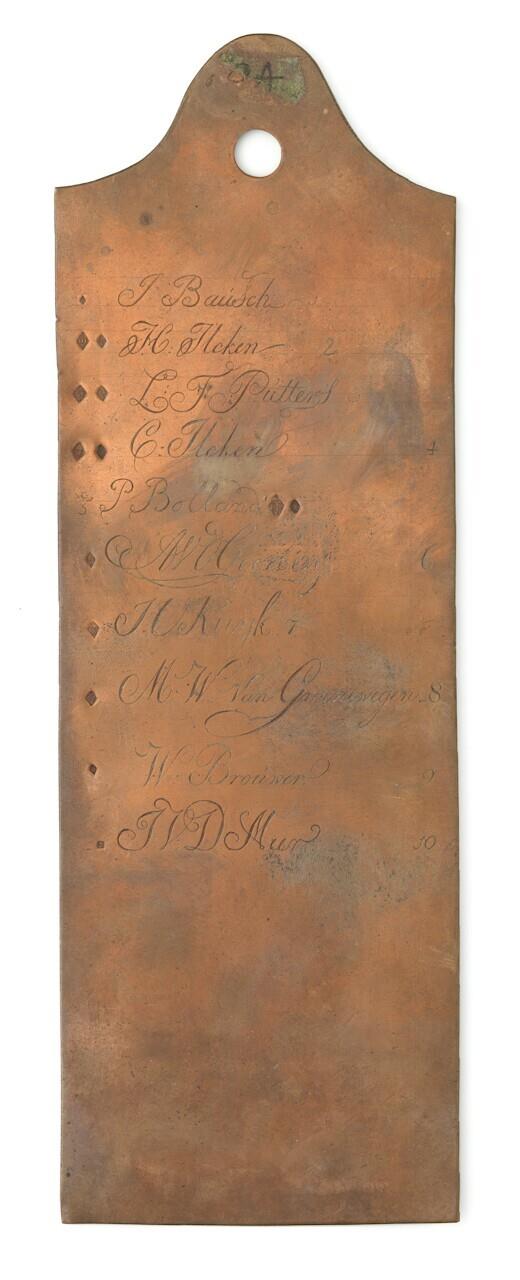 34
J Bausch
H. Ilcken 2
L. F. Putters
C: Ilcken 4
P Bolland
6
H Kuijk 7
M. W. Van Groeniwegen 8
W. Brouwer 9
J V D Mur 10